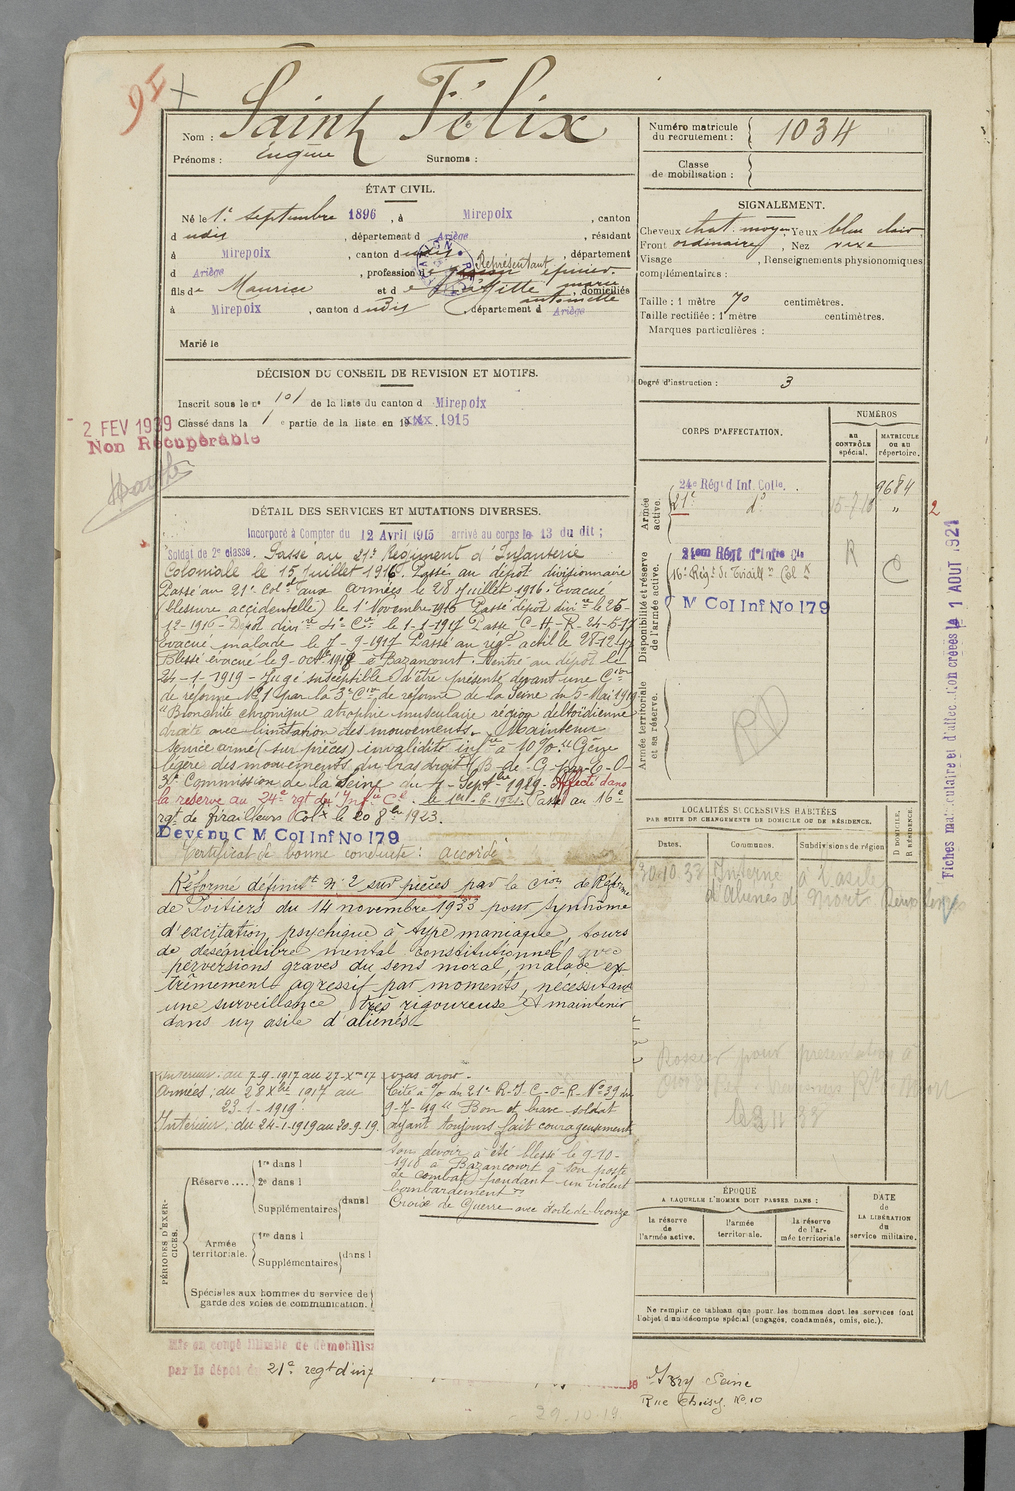 Nom : Saint Félix
Prénoms : Eugène Surnoms :
Numéro matricule
du recrutement : 1034
Classe
de mobilisation :
ÉTAT CIVIL.
Né le 1er septembre 1896, à Mirepoix, canton
d udis, département d Ariège, résidant
à Mirepoix, canton d udis, département
d Ariège, profession d Représentant
épicier.
fils de Maurice et d e Laffitte marie
antoinette, domiciliés
à Mirepoix, canton d udis, département d Ariège
Marié le
SIGNALEMENT.
Cheveux chat. moyen Yeux bleu clair
Front ordinaire, Nez vexe
Visage , Renseignements physionomiques
complémentaires :
Taille : 1 mètre 70 centimètres.
Taille rectifiée : 1 mètre centimètres.
Marques particulières :
Degré d'instruction : 3
DÉCISION DU CONSEIL DE REVISION ET MOTIFS.
Inscrit sous le no 101 de la liste du canton d Mirepoix
Classé dans la 1 e partie de la liste en 1915
2 FEV 1939
Non Récupérable
DÉTAIL DES SERVICES ET MUTATIONS DIVERSES.
Incorporé à Compter du 12 Avril 1915 arrivé au corps le 13 du dit ;
Soldat de 2e classe. Passé au 21e Régiment d'Infanterie
Coloniale le 15 Juillet 1916. Passé au dépôt divisionnaire
Passé au 21e Colal aux armées le 28 Juillet 1916. Evacué
(blessure accidentelle) le 1er Novembre 1916 Passé dépôt divre le 26-
12-1916 - Dépôt divre 4e Cie le 1-1-1917 Passé C-H-R-24-5-17
Evacué malade le 7-9-1917 Passé au régt actif le 28-12-17
Blessé évacué le 9-octbre 1918 à Bazancourt. Rentré au dépôt le
24-1-1919 - Jugé susceptible d'être présenté devant une Con
de réforme No 1 par la 3e Con de réforme de la Seine du 5-Mai 1919
"Bronchite chronique atrophie musculaire région deltoïdienne
droite avec limitation des mouvements. Maintenu
service armé (sur pièces) invalidité infre à 10%. "Gêne
légère des mouvements du bras droit
Commission de la Seine du 4-Septbre 1919. Affecté dans
la réserve au 24e rgt d'Infie Cle. le 1er-6-1921. Passé au 16e
rgt de tirailleurs Colx le 20 8bre 1923.
Devenu C M Col Inf No 179
Certificat de bonne conduite : accordé
Réforme définitt No 2 sur pièces par la Cion de Réforme
de Poitiers du 14 novembre 1933 pour syndrome
d'excitation psychique à type maniaque, tours
de déséquilibre mental constitutionnel, avec
perversions graves du sens moral, malade ex-
trêmement agressif par moments, nécessitant
une surveillance très rigoureuse. A maintenir
dans un asile d'aliénés
Intérieur : du 7-9-1917 au 27-Xbre 17
Armées : du 28 Xbre 1917 au
23-1-1919
Intérieur : du 24-1-1919 au 20-9-19.
bras droit -
Cité à l'o du 21e R-I-C-O-R-No 39 du
9-7-19 "Bon et brave soldat
ayant toujours fait courageusement
son devoir a été blessé le 9-10-
1918 à Bazancourt à son poste
de combat, pendant un violent
bombardement"
Croix de Guerre avec étoile de bronze
CORPS D'AFFECTATION.
NUMÉROS
au
CONTRÔLE
spécial.
MATRICULE
ou au
répertoire.
Armée
active.
24e Régt d'Inf. Colle. 9684
21e do 15-7-16 "
2
Disponibilité et réserve
de l'armée active.
24em Régt d'Infre Cle
16e Régt de Tirailrs Colx
C M Col Inf No 179
R
C
Armée territoriale
et sa réserve.
RD
Fiches matriculaire et d'affectation créées le 1 AOUT 1921
LOCALITÉS SUCCESSIVES HABITÉES
PAR SUITE DE CHANGEMENTS DE DOMICILE OU DE RÉSIDENCE.
Dates. Communes. Subdivisions de région
D DOMICILE.
R RÉSIDENCE.
30.10.33 Interné à l'asile
d'Aliénés de Niort Deux Sèvres
Dossier pour présentation à
PÉRIODES D'EXERCICES.
Réserve....
1re dans l
2e dans l
Supplémentaires dans l
Armée
territoriale.
1re dans l
Supplémentaires dans l
Spéciales aux hommes du service de
garde des voies de communication.
ÉPOQUE
À LAQUELLE L'HOMME DOIT PASSER DANS :
la réserve
de
l'armée active.
l'armée
territoriale.
la réserve
de l'ar-
mée territoriale
DATE
de
LA LIBÉRATION
du
service militaire.
Ne remplir ce tableau que pour les hommes dont les services font
l'objet d'un décompte spécial (engagés, condamnés, omis, etc.).
Mis en congé illimité de démobilisa
par le dépôt du 21e regt d'inf
29-10-19
Ivry Seine
Rue Choisy No 10